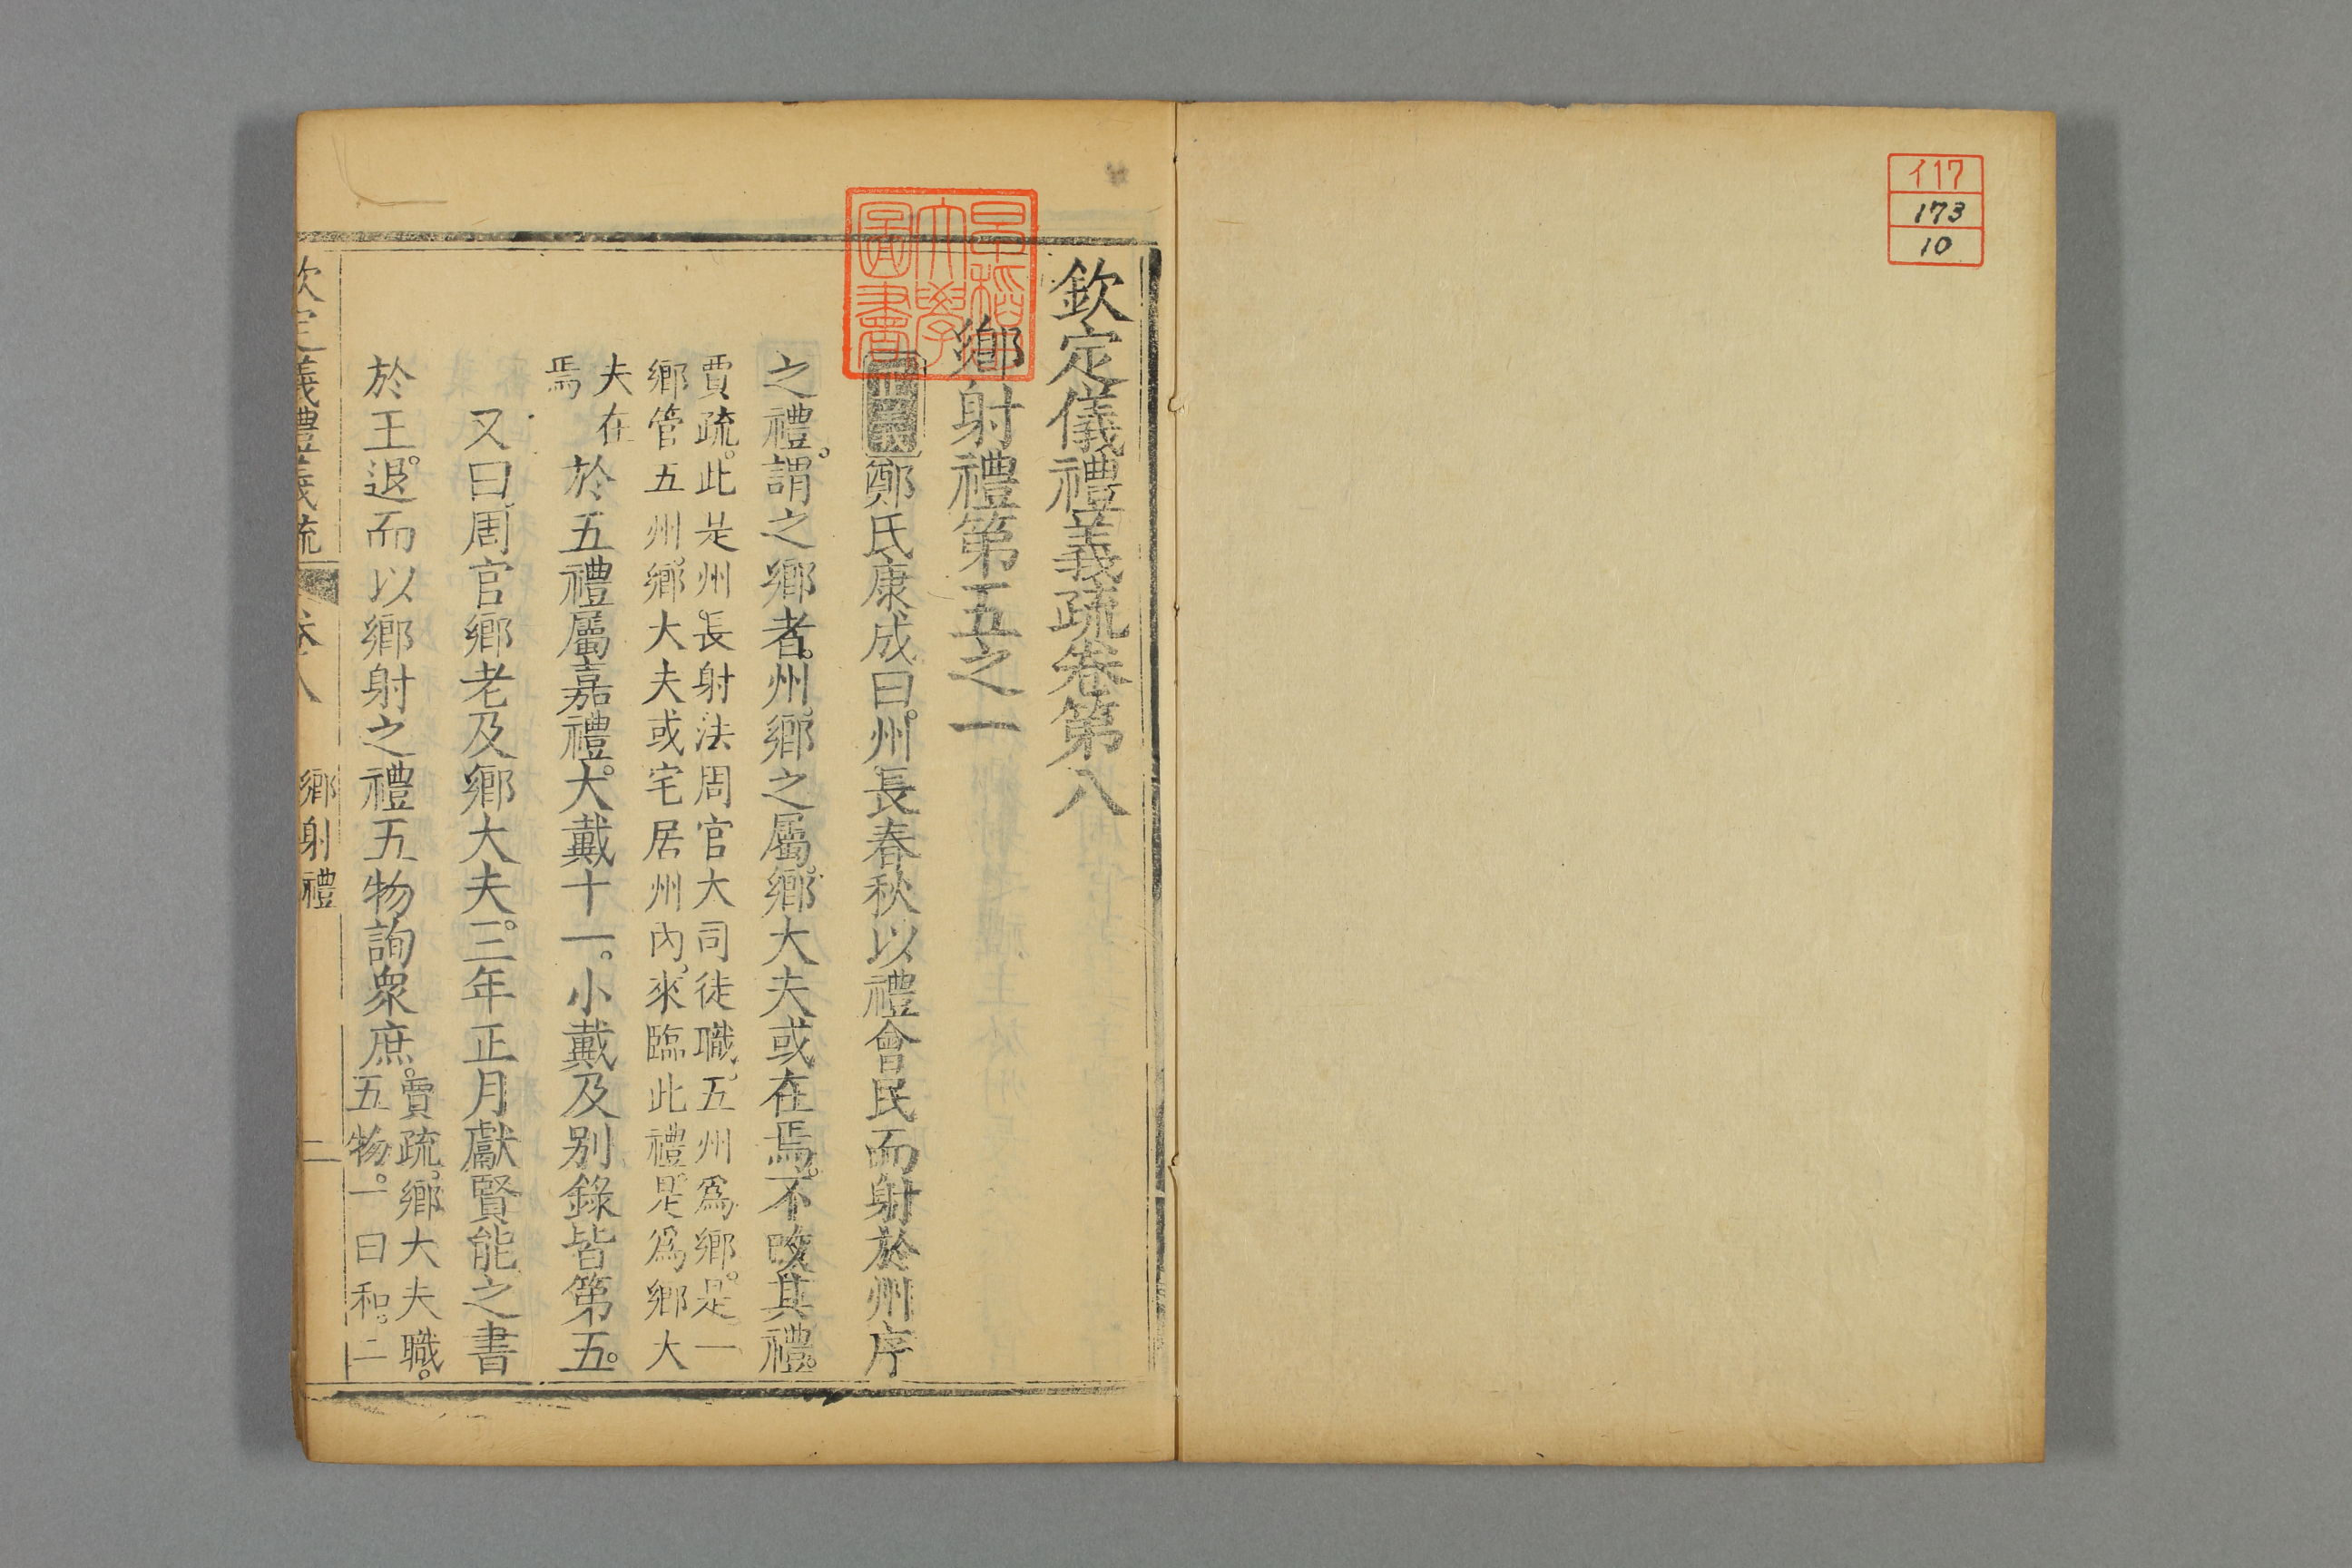 イ17
173
10
早稲田大學圖書
欽定儀禮義疏卷第八
鄉射禮第五之一
正義鄭氏康成曰。州長春秋以禮會民而射於州序
之禮。謂之鄉者。州。鄉之屬。鄉大夫或在焉。不改其禮。
賈疏。此是州長射法周官大司徒職。五州爲鄉。是一
鄉管五州。鄉大夫或宅居州內。來臨此禮。是爲鄉大
夫在
焉
於五禮屬嘉禮。大戴十一。小戴及別錄皆第五。
又曰。周官鄉老及鄉大夫。三年正月獻賢能之書
於王。退而以鄉射之禮五物詢衆庶。
賈疏。鄉大夫職。
五物。一曰和。二
欽定儀禮義疏 卷八 鄉射禮 二